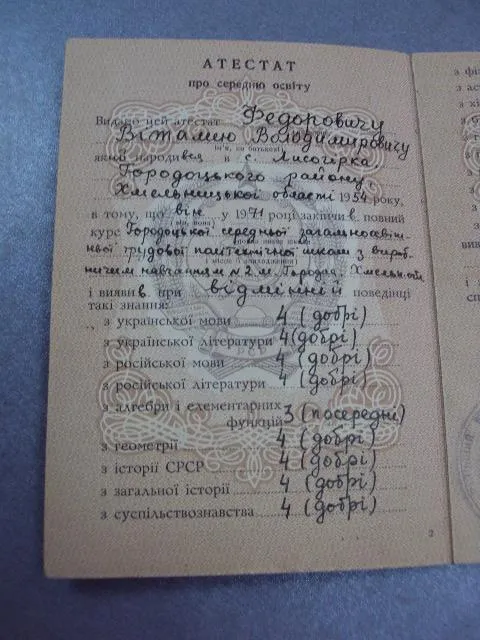 АТЕСТАТ
про середню освіту
Видано цей атестат Федоровичу
Віталию Володимировичу
(ім'я, по батькові)
який народився в с. Лисогірка
Городоцького району
Хмельницької області 1954 року,
в тому, що він у 1971 році закінчив повний
(він, вона)
курс Городоцької середньої загальноосвіт-
ньої трудової політехнічної школи з вироб-
ничим навчанням № 2 м. Городка, Хмельн. обл.
і виявив при відмінній поведінці
такі знання:
з української мови 4 (добрі)
з української літератури 4 (добрі)
з російської мови 4 (добрі)
з російської літератури 4 (добрі)
з алгебри і елементарних
функцій 3 (посередні)
з геометрії 4 (добрі)
з історії СРСР 4 (добрі)
з загальної історії 4 (добрі)
з суспільствознавства 4 (добрі)
2
з фі
з ас
з хі
з
з
з